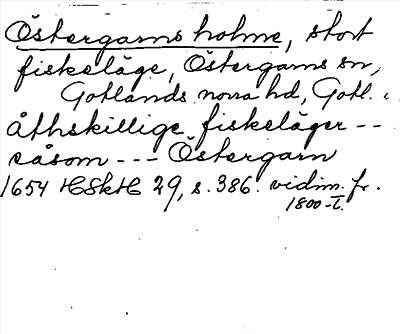 Östergarns holme, stort
fiskeläge, Östergarns sn,
Gotlands norra hd, Gotl.
åthskillige fiskeläger --
såsom --- Östergarn
1654 HSkH 29, s. 386. vidim. fr.
1800-t.